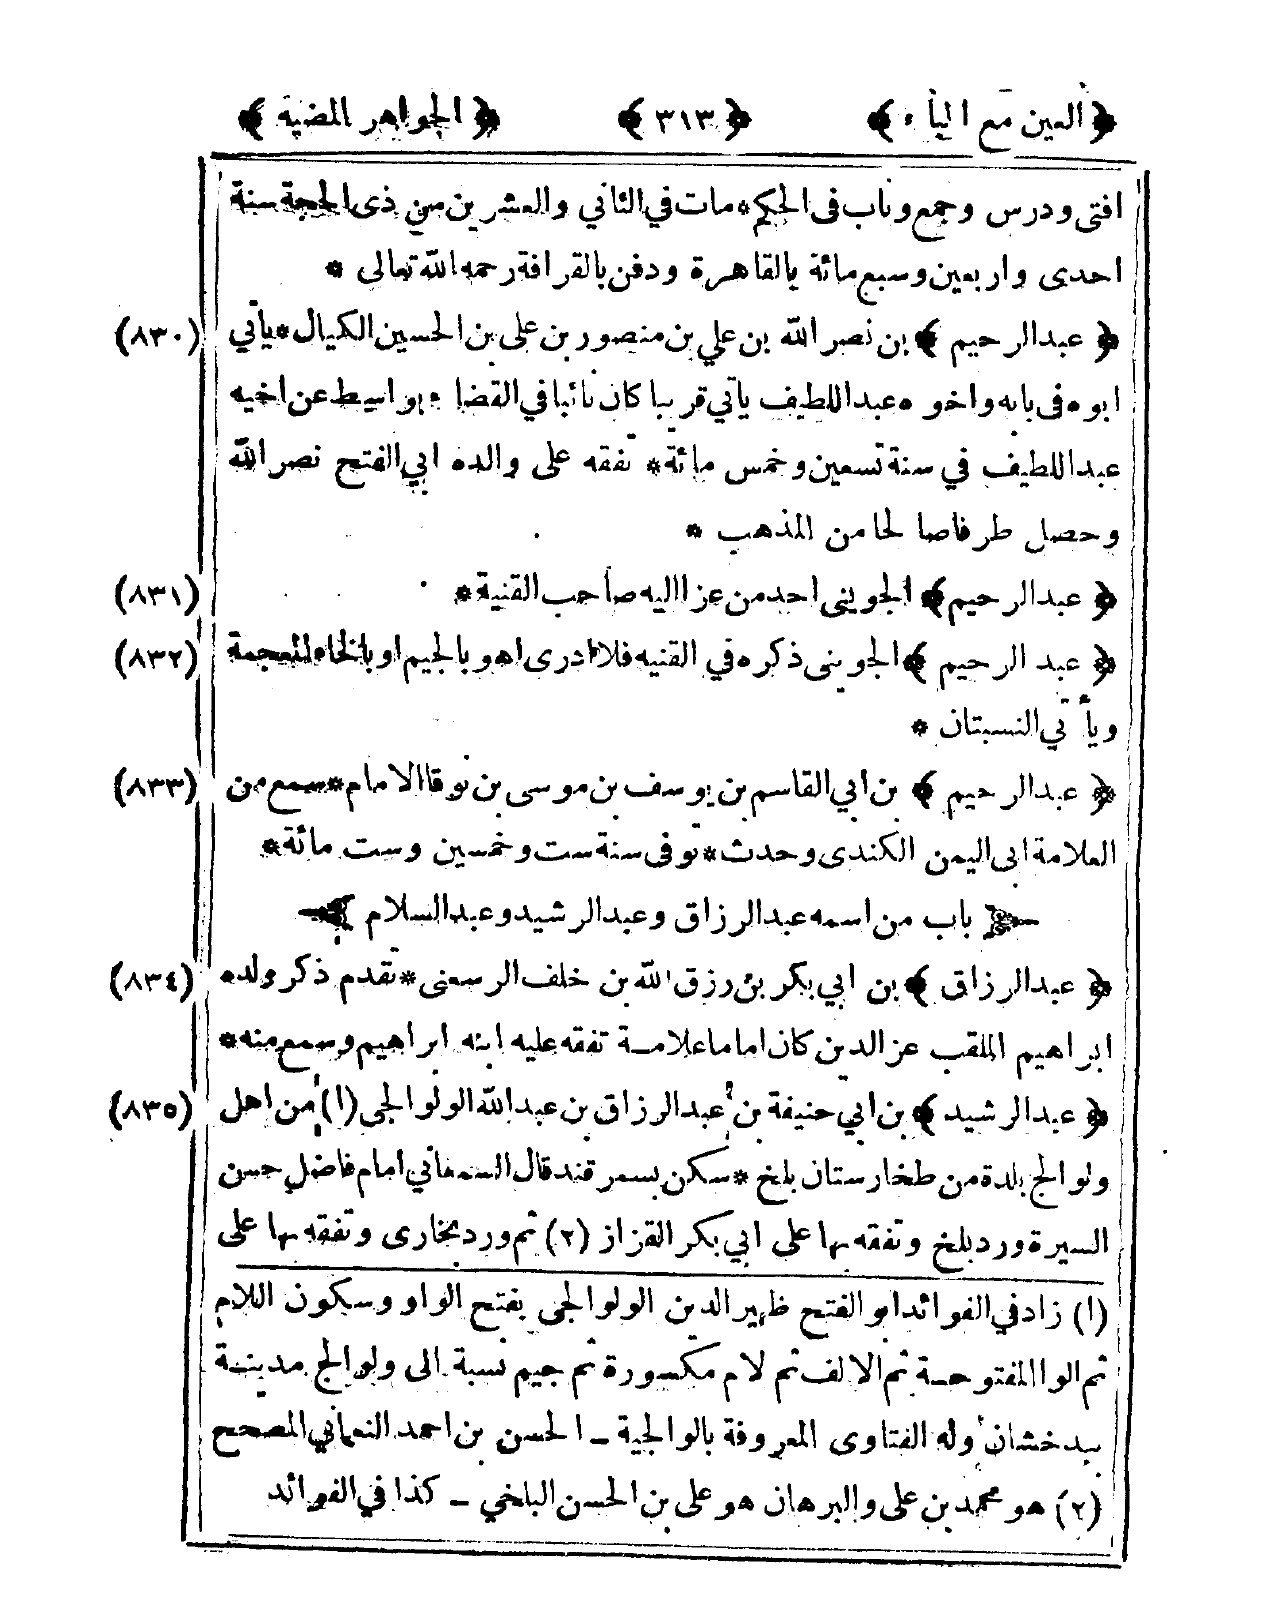 ﴿ العين مع الياء ﴾ ﴿ ٣١٣ ﴾ ﴿ الجواهر المضية ﴾
افتى ودرس وجمع وناب فى الحكم * مات في الثاني والعشرين من ذى الحجة سنة
احدى واربعين وسبع مائة بالقاهرة ودفن بالقرافة رحمه الله تعالى *
﴿ عبد الرحيم ﴾ بن نصر الله بن علي بن منصور بن على بن الحسين الكيال * يأتي (٨٣٠)
ابوه فى بابه واخوه عبد اللطيف يأتي قريبا كان نائبا في القضاء بواسيط عن اخيه
عبد اللطيف في سنة تسعين وخمس مائة * تفقه على والده ابي الفتح نصر الله
وحصل طرفا صالحا من المذهب *
﴿ عبد الرحيم ﴾ الجويني احد من عزا اليه صاحب القنية * (٨٣١)
﴿ عبد الرحيم ﴾ الجوبنى ذكره في القنيه فلا ادرى اهو بالجيم او بالخاء المعجمة (٨٣٢)
ويأتي النسبتان *
﴿ عبد الرحيم ﴾ بن ابي القاسم بن يوسف بن موسى بن توقا الامام * سمع من (٨٣٣)
العلامة ابى اليمن الكندى وحدث * توفى سنة ست وخمسين وست مائة *
﴿ باب من اسمه عبد الرزاق وعبد الرشيد وعبد السلام ﴾
﴿ عبد الرزاق ﴾ بن ابي بكر بن رزق الله بن خلف الرسعنى * تقدم ذكر ولده (٨٣٤)
ابراهيم الملقب عز الدين كان اماما علامة تفقه عليه ابنه ابراهيم وسمع منه *
﴿ عبد الرشيد ﴾ بن ابي حنيفة بن عبد الرزاق بن عبد الله الولوالجى (١) من اهل (٨٣٥)
ولوالج بلدة من طخارستان بلخ * سكن بسمرقند قال السمعاني امام فاضل حسن
السيرة ورد بلخ وتفقه بها على ابي بكر القزاز (٢) ثم ورد بخارى وتفقه بها على
(١) زاد في الفوائد ابو الفتح ظهير الدين الولوالجى بفتح الواو وسكون اللام
ثم الواالمفتوحة ثم الالف ثم لام مكسورة ثم جيم نسبة الى ولوالج مدينة
ببدخشان وله الفتاوى المعروفة بالوالجية ـ الحسن بن احمد النعماني المصحح
(٢) هو محمد بن على والبرهان هو على بن الحسن البلخي ـ كذا في الفوائد